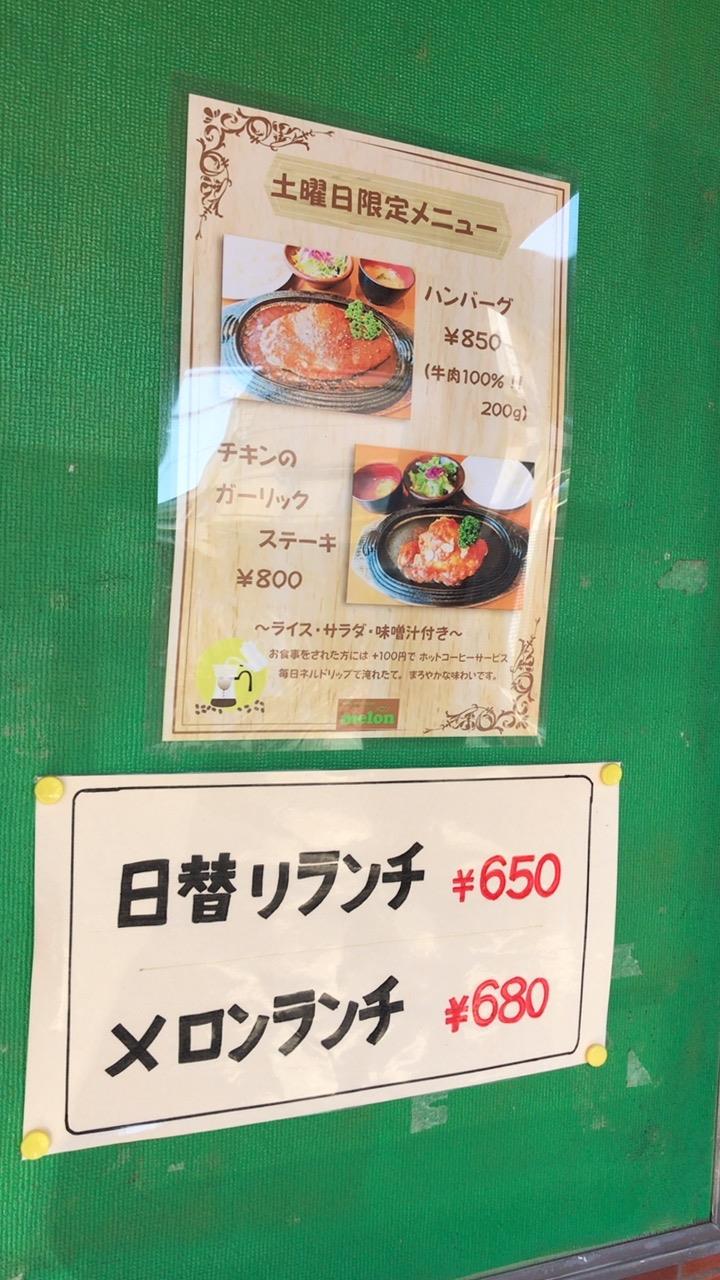 土曜日限定メニュー
ハンバーグ
¥850
(牛肉100% !!
200g)
チキンの
ガーリック
ステーキ
¥800
〜ライス・サラダ・味噌汁付き〜
お食事をされた方には +100円で ホットコーヒーサービス
毎日ネルドリップで淹れたて。まろやかな味わいです。
melon
日替リランチ ¥650
メロンランチ ¥680